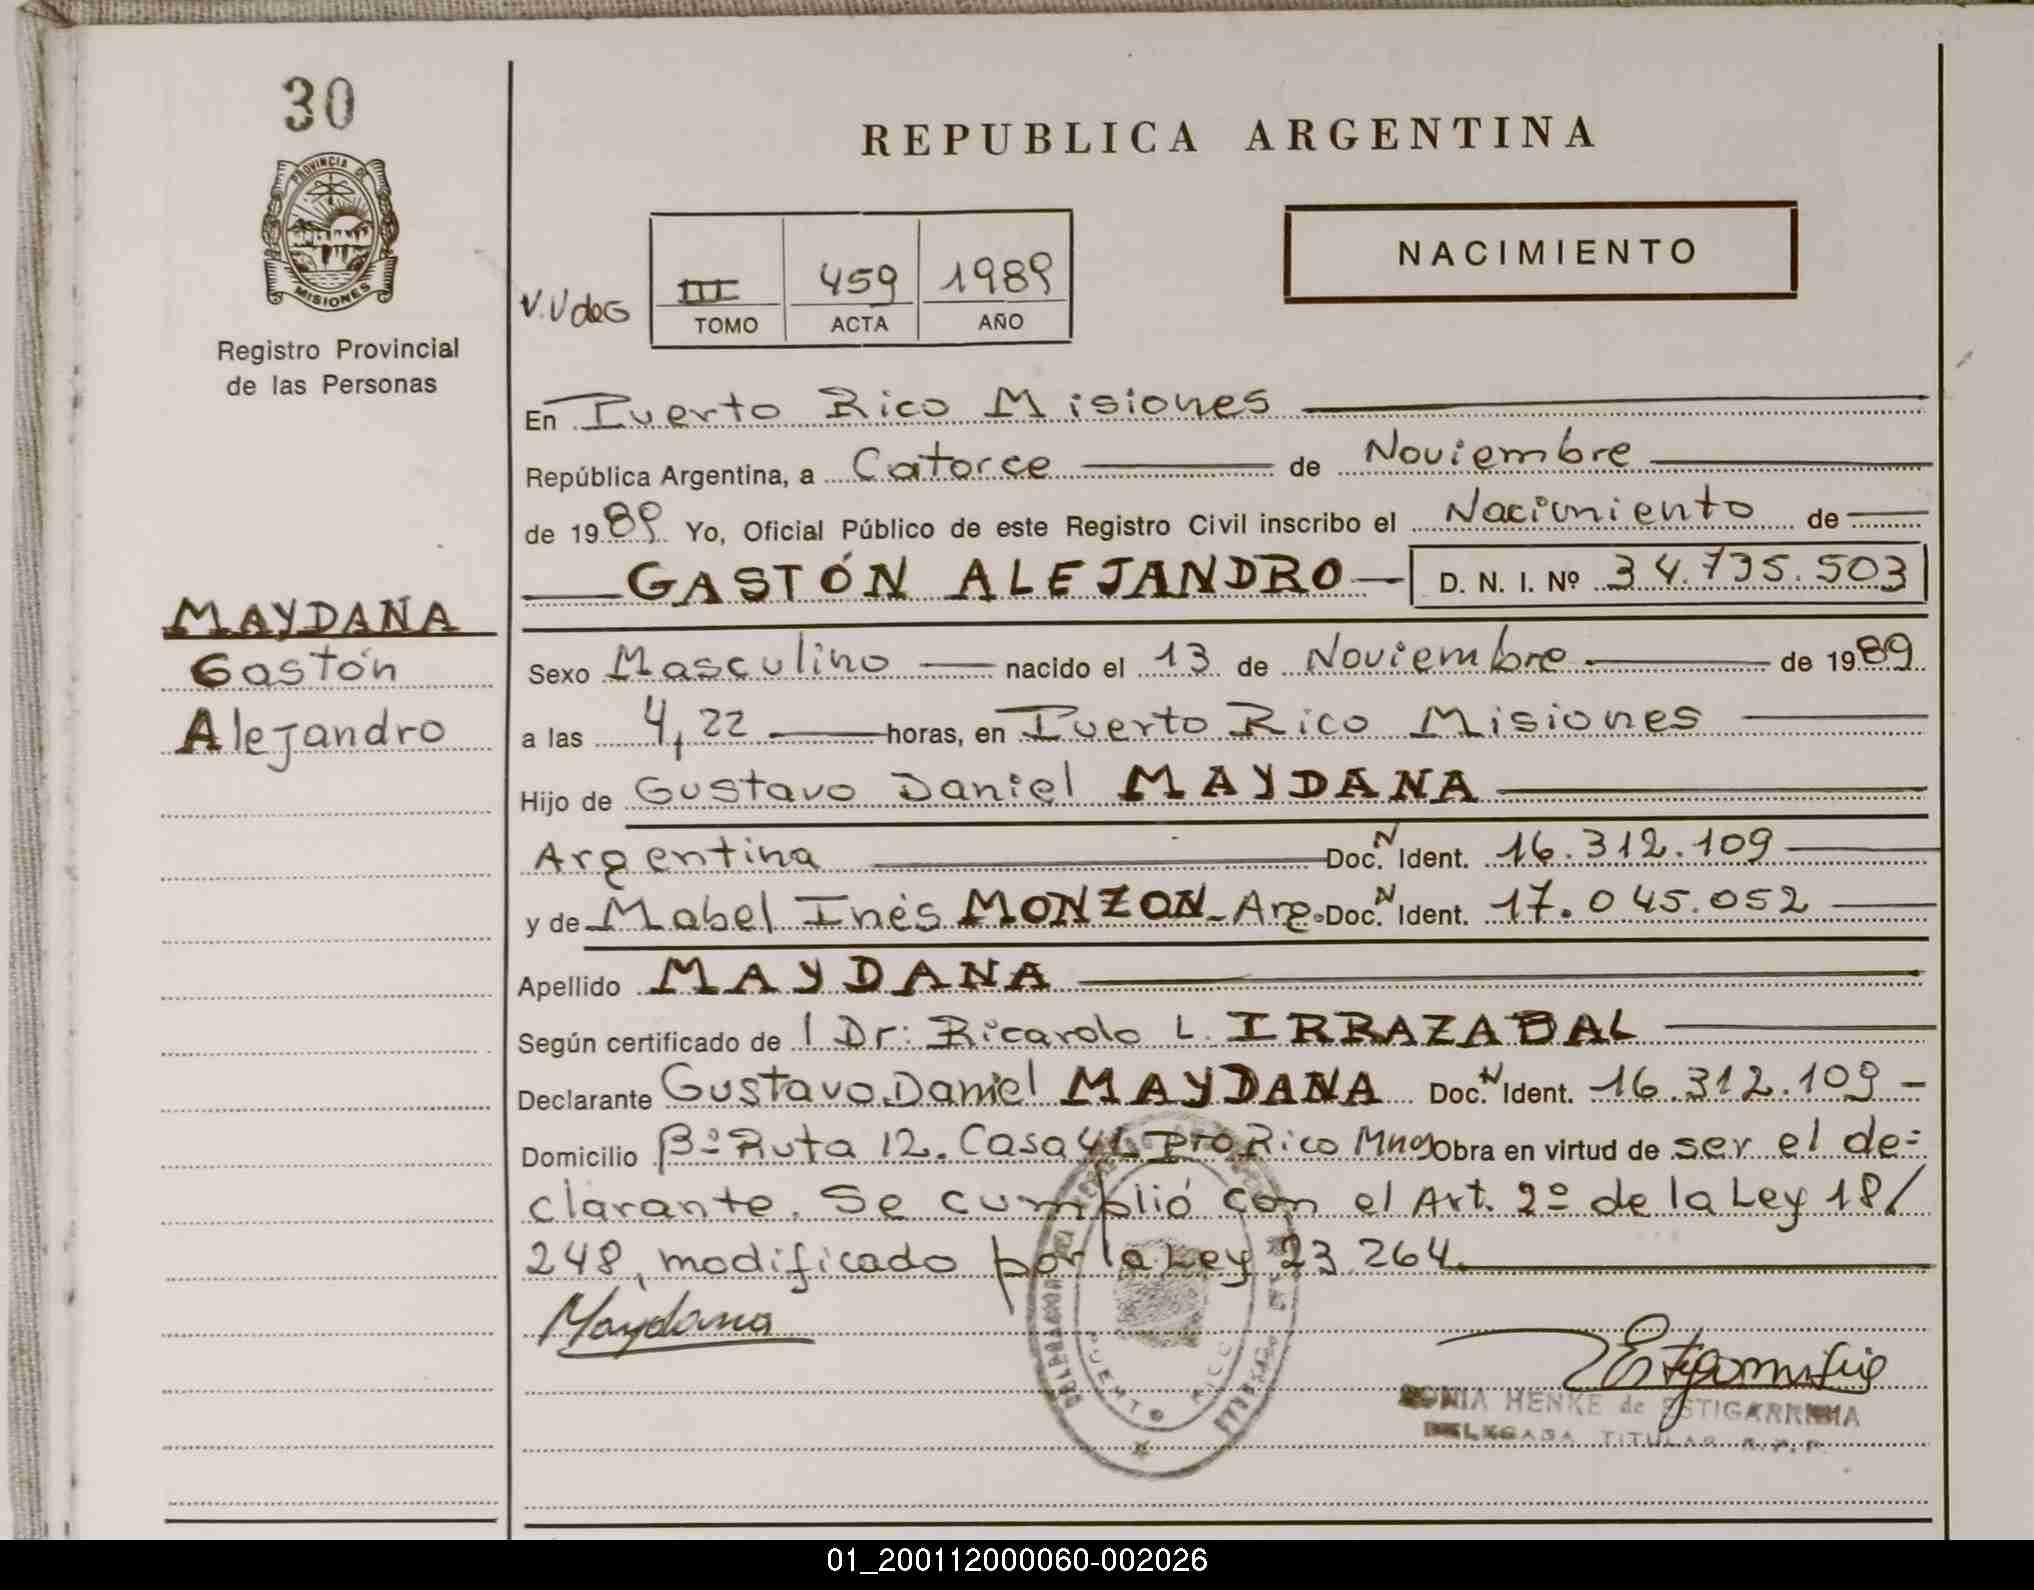 30
PROVINCIA DE
MISIONES
Registro Provincial
de las Personas
MAYDANA
Gastón
Alejandro
REPUBLICA ARGENTINA
NACIMIENTO
III 459 1989
TOMO ACTA AÑO
En Puerto Rico Misiones
República Argentina, a Catorce de Noviembre
de 1989 Yo, Oficial Público de este Registro Civil inscribo el Nacimiento de
GASTÓN ALEJANDRO D. N. I. Nº 34.735.503
Sexo Masculino nacido el 13 de Noviembre de 1989
a las 4,22 horas, en Puerto Rico Misiones
Hijo de Gustavo Daniel MAYDANA
Argentina Doc. N Ident. 16.312.109
y de Mabel Inés MONZON - Arg. Doc. N Ident. 17.045.052
Apellido MAYDANA
Según certificado de l Dr: Ricardo L. IRRAZABAL
Declarante Gustavo Daniel MAYDANA Doc. N Ident. 16.312.109 -
Domicilio Bº Ruta 12. Casa 41 Pto Rico Mnes Obra en virtud de ser el de=
clarante. Se cumplió con el Art. 2º de la Ley 18/
248, modificado por la Ley 23.264.
Maydana
PUERTO RICO
SONIA HENKE de ESTIGARRIBIA
DELEGADA TITULAR R.P.P.
01_200112000060-002026